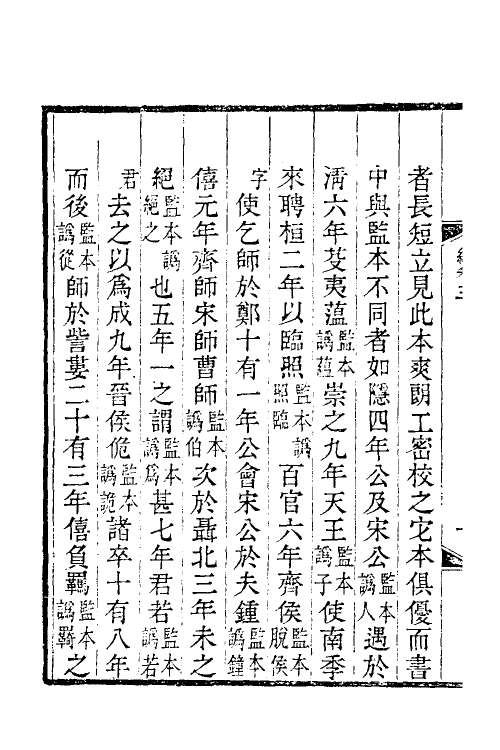 者長短立見此本爽朗工密校之它本俱優而書
中與監本不同者如隱四年公及宋公監本譌人遇於
淸六年芟夷薀監本譌蘊崇之九年天王監本譌子使南季
來聘桓二年以臨照監本譌照臨百官六年齊侯監本脫侯
字使乞師於鄭十有一年公會宋公於夫鍾監本譌鐘
僖元年齊師宋師曹師監本譌伯次於聶北三年未之
絕監本譌絕之也五年一之謂監本譌爲甚七年君若監本譌若
君去之以爲成九年晉侯佹監本譌詭諸卒十有八年
而後監本譌從師於訾婁二十有三年僖負羈監本譌羇之